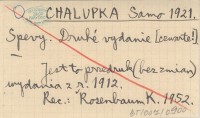 CHALUPKA Samo 1921.
Spevy. Druhé vydanie [czwarte!]
—
Jest to przedruk (bez zmian)
wydania z r. 1912.
Rec.: Rozenbaum K. 1952.